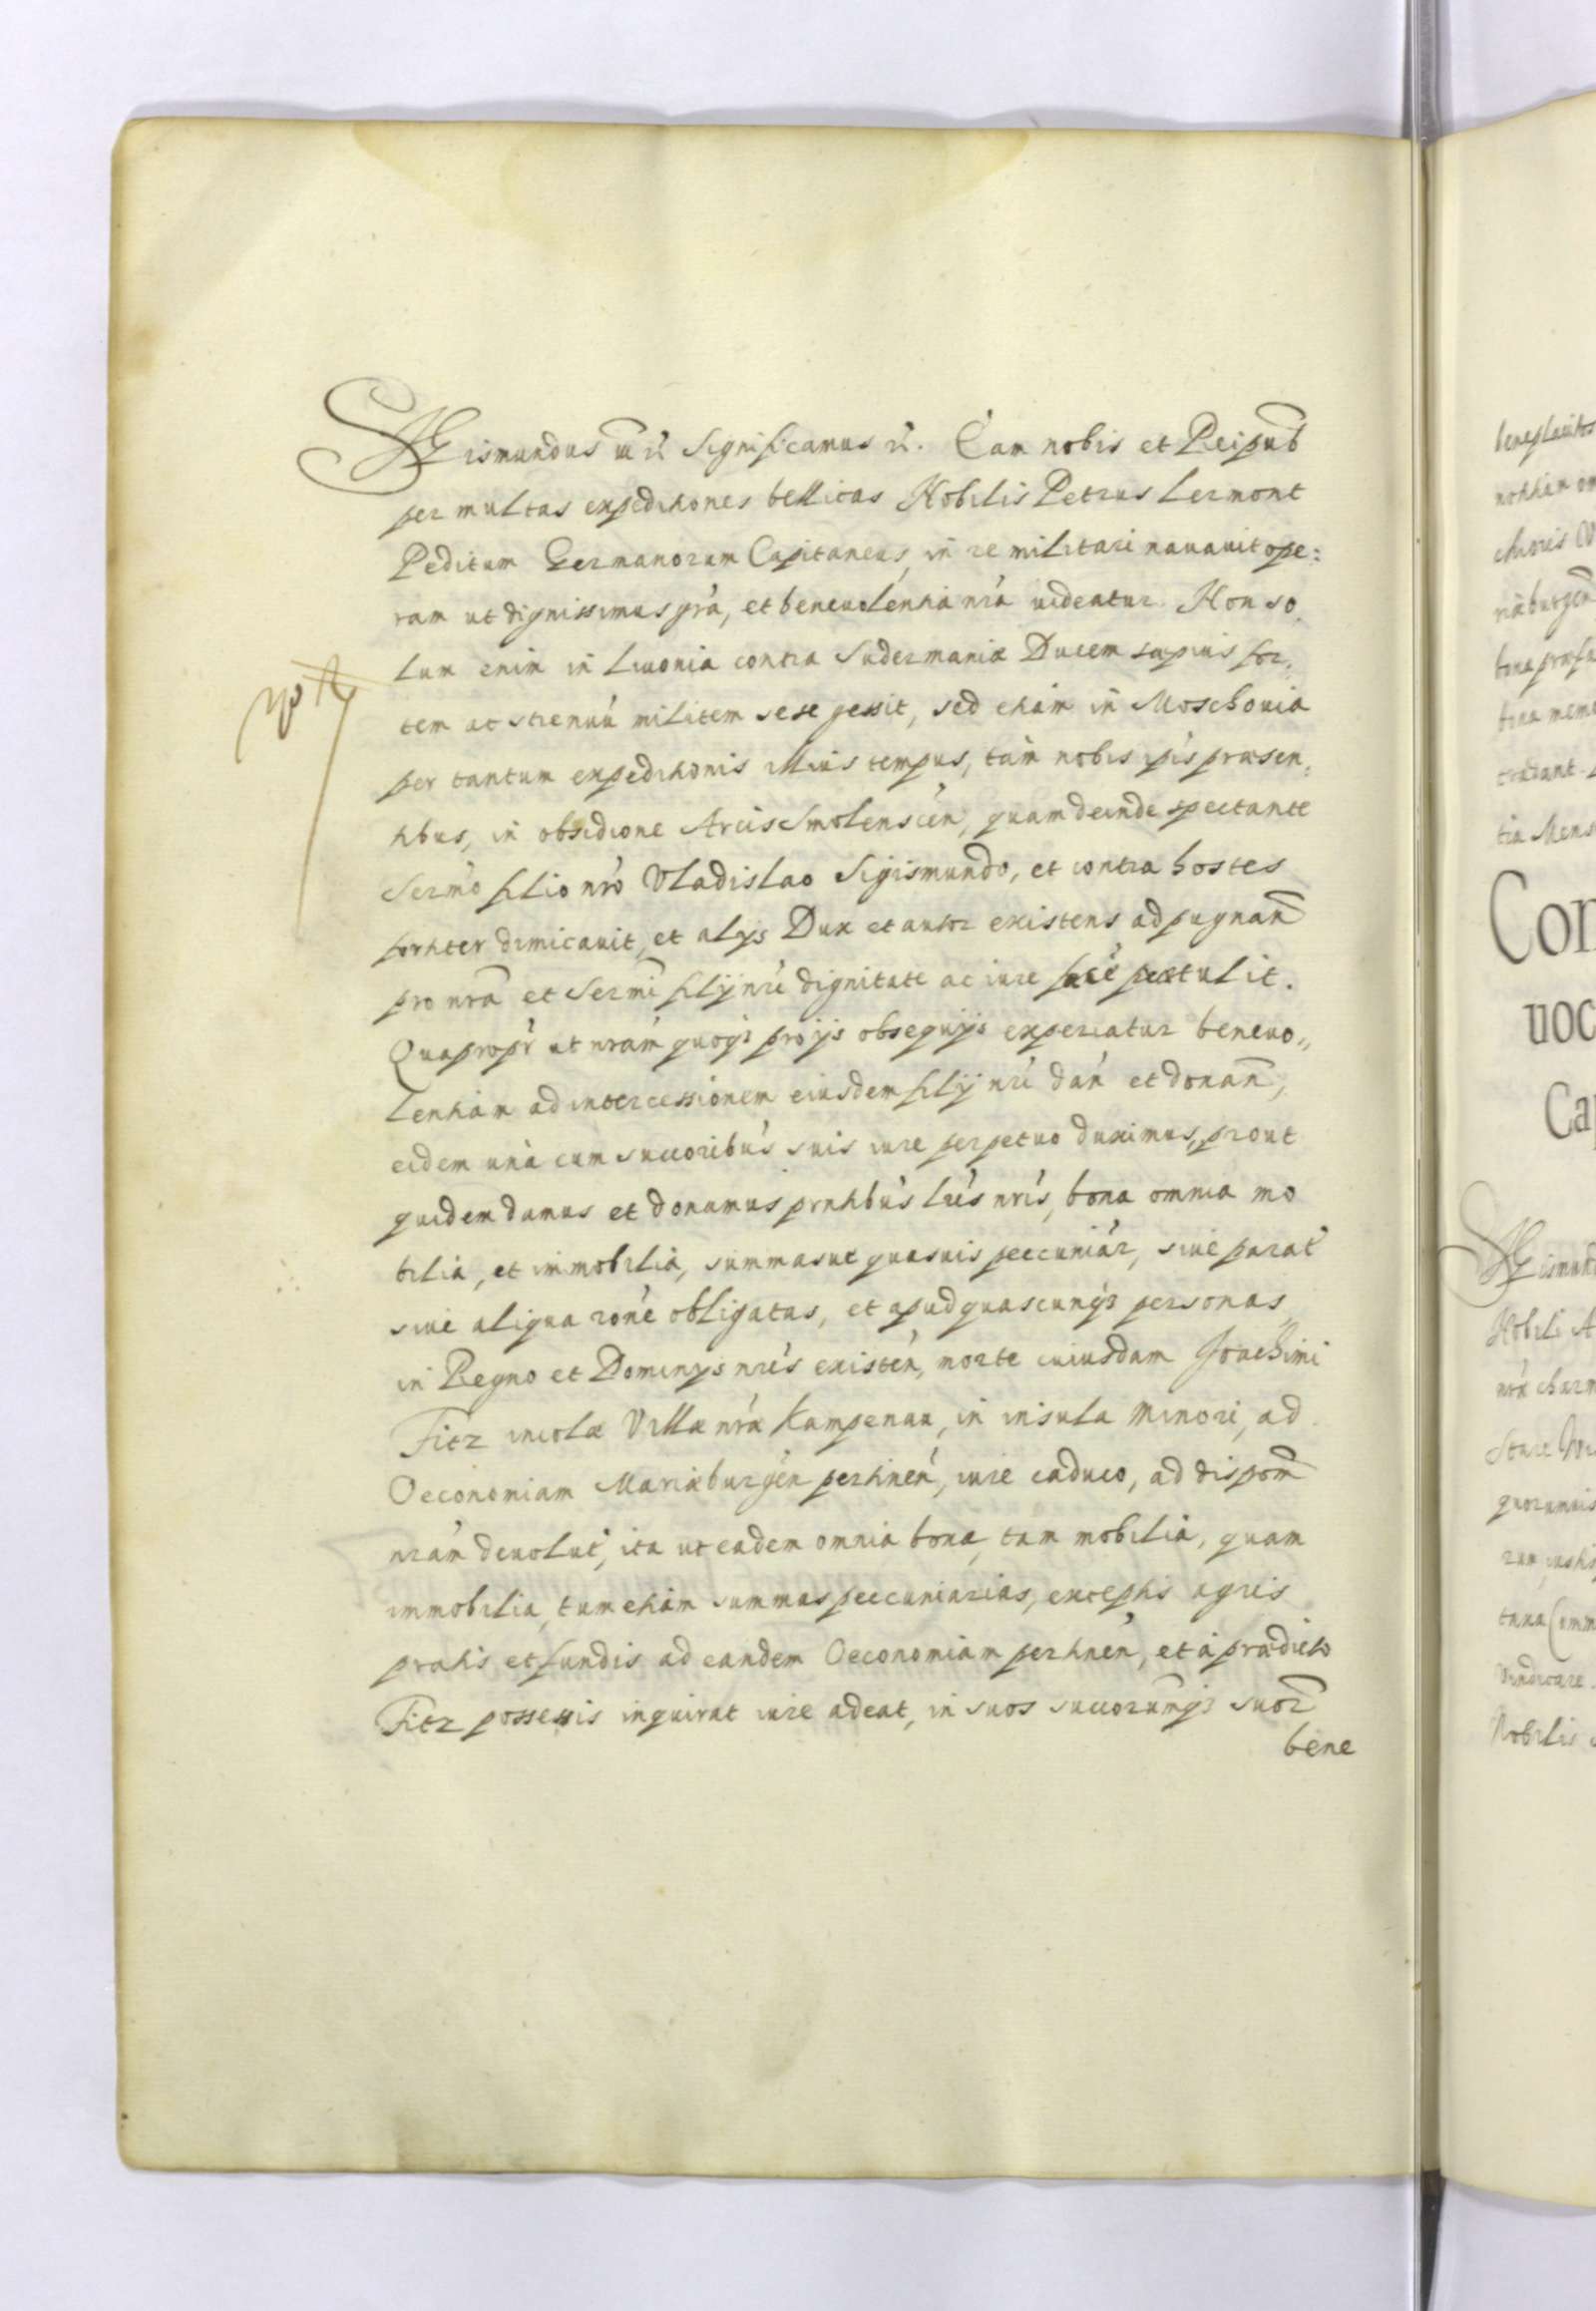 Sigismundus &c Significamus &c. Eam nobis et Reipub
per multas expeditiones bellicas Nobilis Petrus Lermont
Peditum Germanorum Capitaneus, in re militari nauauit ope:
ram ut dignissimus gra, et beneuolentia nra uideatur. Non so
lum enim in Liuonia contra Sudermaniæ Ducem sæpius for,
tem ac strenuu militem sese gessit, sed etiam in Moschouia
per tantum expeditionis illius tempus, tam nobis ipsis præsen,
tibus, in obsidione Arcis Smolenscen, quam deinde spectante
Sermo filio nro Vladislao Sigismundo, et contra hostes
fortiter dimicauit, et alijs Dux et autor existens ad pugnan
pro nra et Sermi filij nri dignitate ac iure
Quapropr ut nram quoqz pro ijs obsequijs experiatur beneuo,,
lentiam ad intercessionem eiusdem filij nri dan et donan,
eidem una cum succoribus suis iure perpetuo duximus, prout
quidem damus et donamus prntibus lris nris, bona omnia mo
bilia, et immobilia, summasue quasuis peccuniar, siue parat
siue aliqua rone obligatas, et apud quascunqz personas
in Regno et Dominijs nris existen, morte cuiusdam Joachimi
Fitz incolæ Villæ nræ Kampenau, in insula minori, ad
Oeconomiam Mariæburgen pertinen, iure caduco, ad dispom
nram deuolut, ita ut eadem omnia bona, tam mobilia, quam
immobilia, tum etiam summas peccuniarias, exceptis agris
pratis et fundis ad eandem Oeconomiam pertinen, et à prædicto
Fitz possessis inquirat iure adeat, in suos succorumqz suor
bene
beneplacitos
Con
uoc
Ca
Nobili A
Nobilis